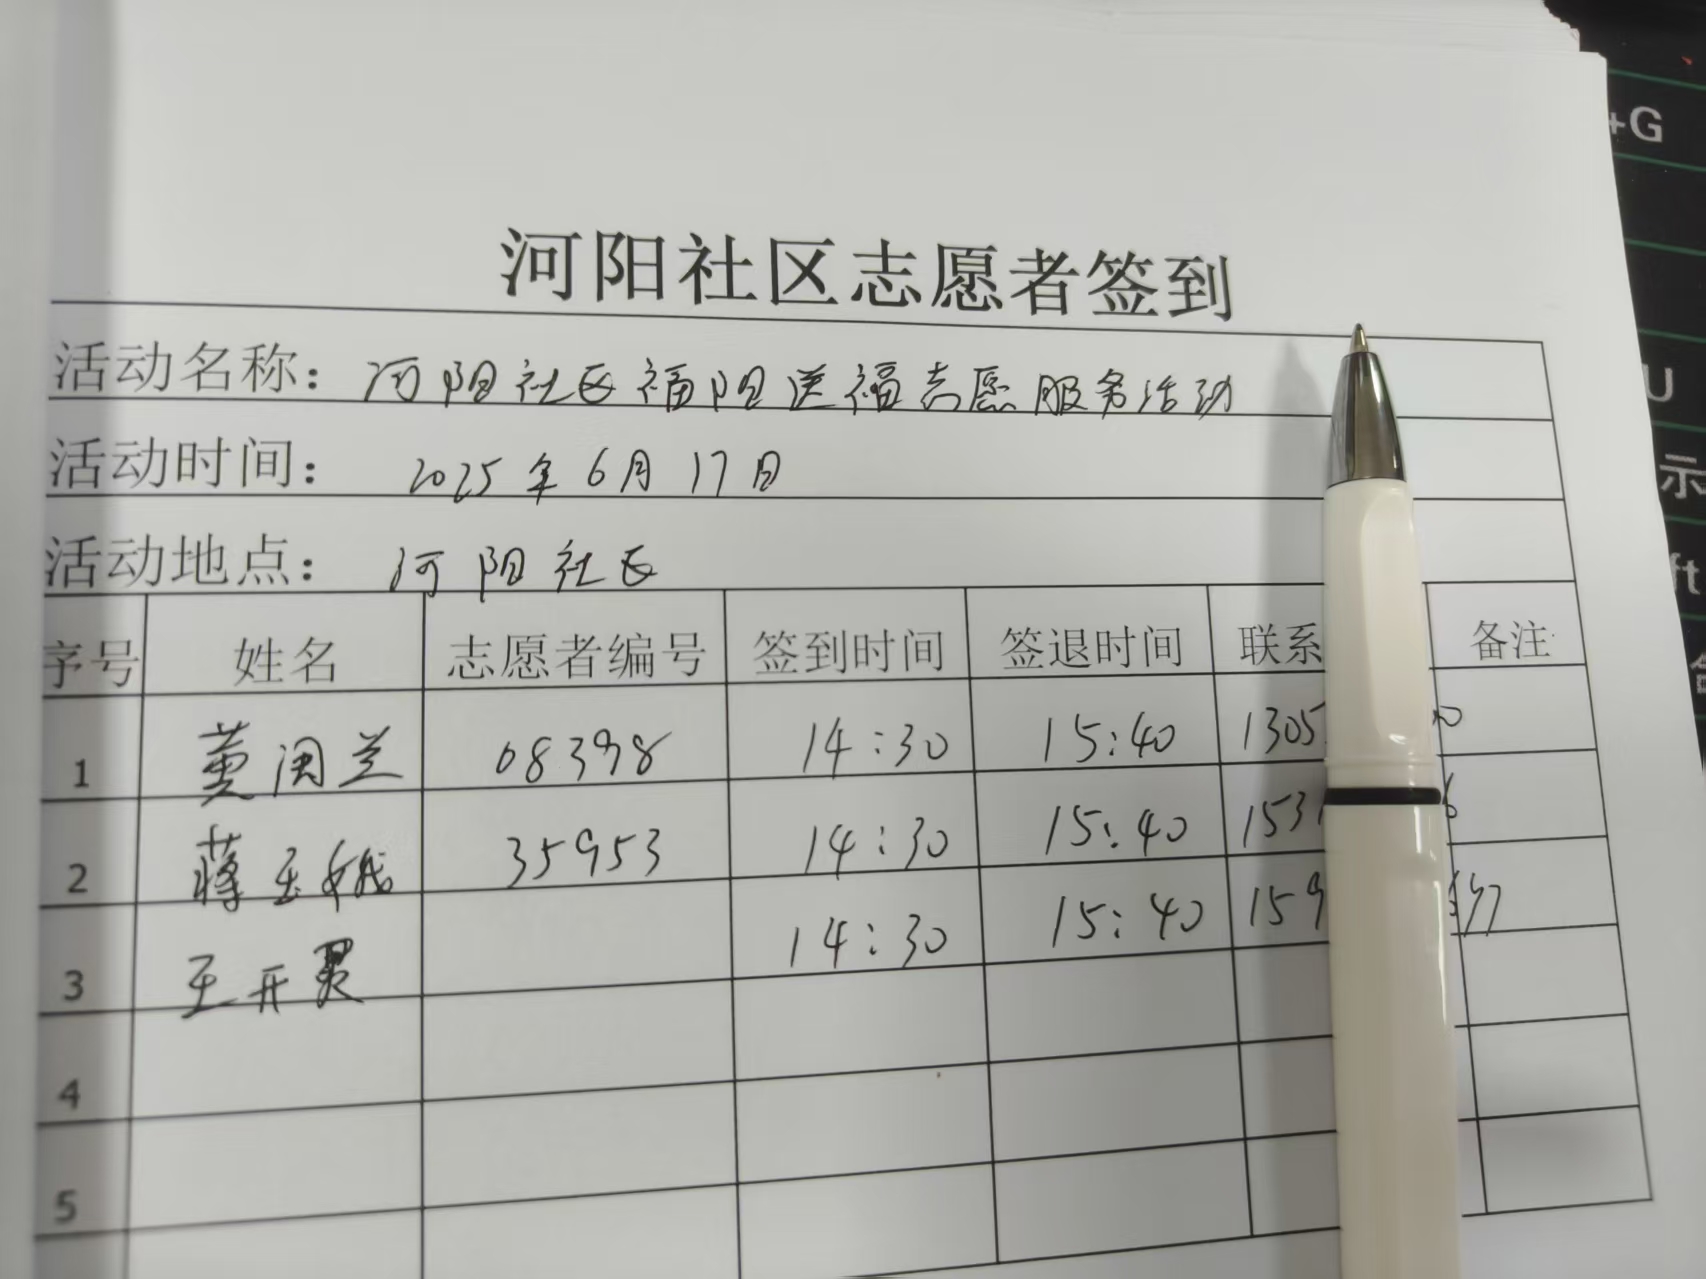 河阳社区志愿者签到
活动名称：河阳社区福阳送福志愿服务活动
活动时间：2025年6月17日
活动地点：河阳社区
序号 姓名 志愿者编号 签到时间 签退时间 联系 备注
1 黄闰兰 08398 14:30 15:40 1305
2 蒋玉娥 35953 14:30 15:40 153 6
3 王开 14:30 15:40 159
4
5
+G
U
示
ft